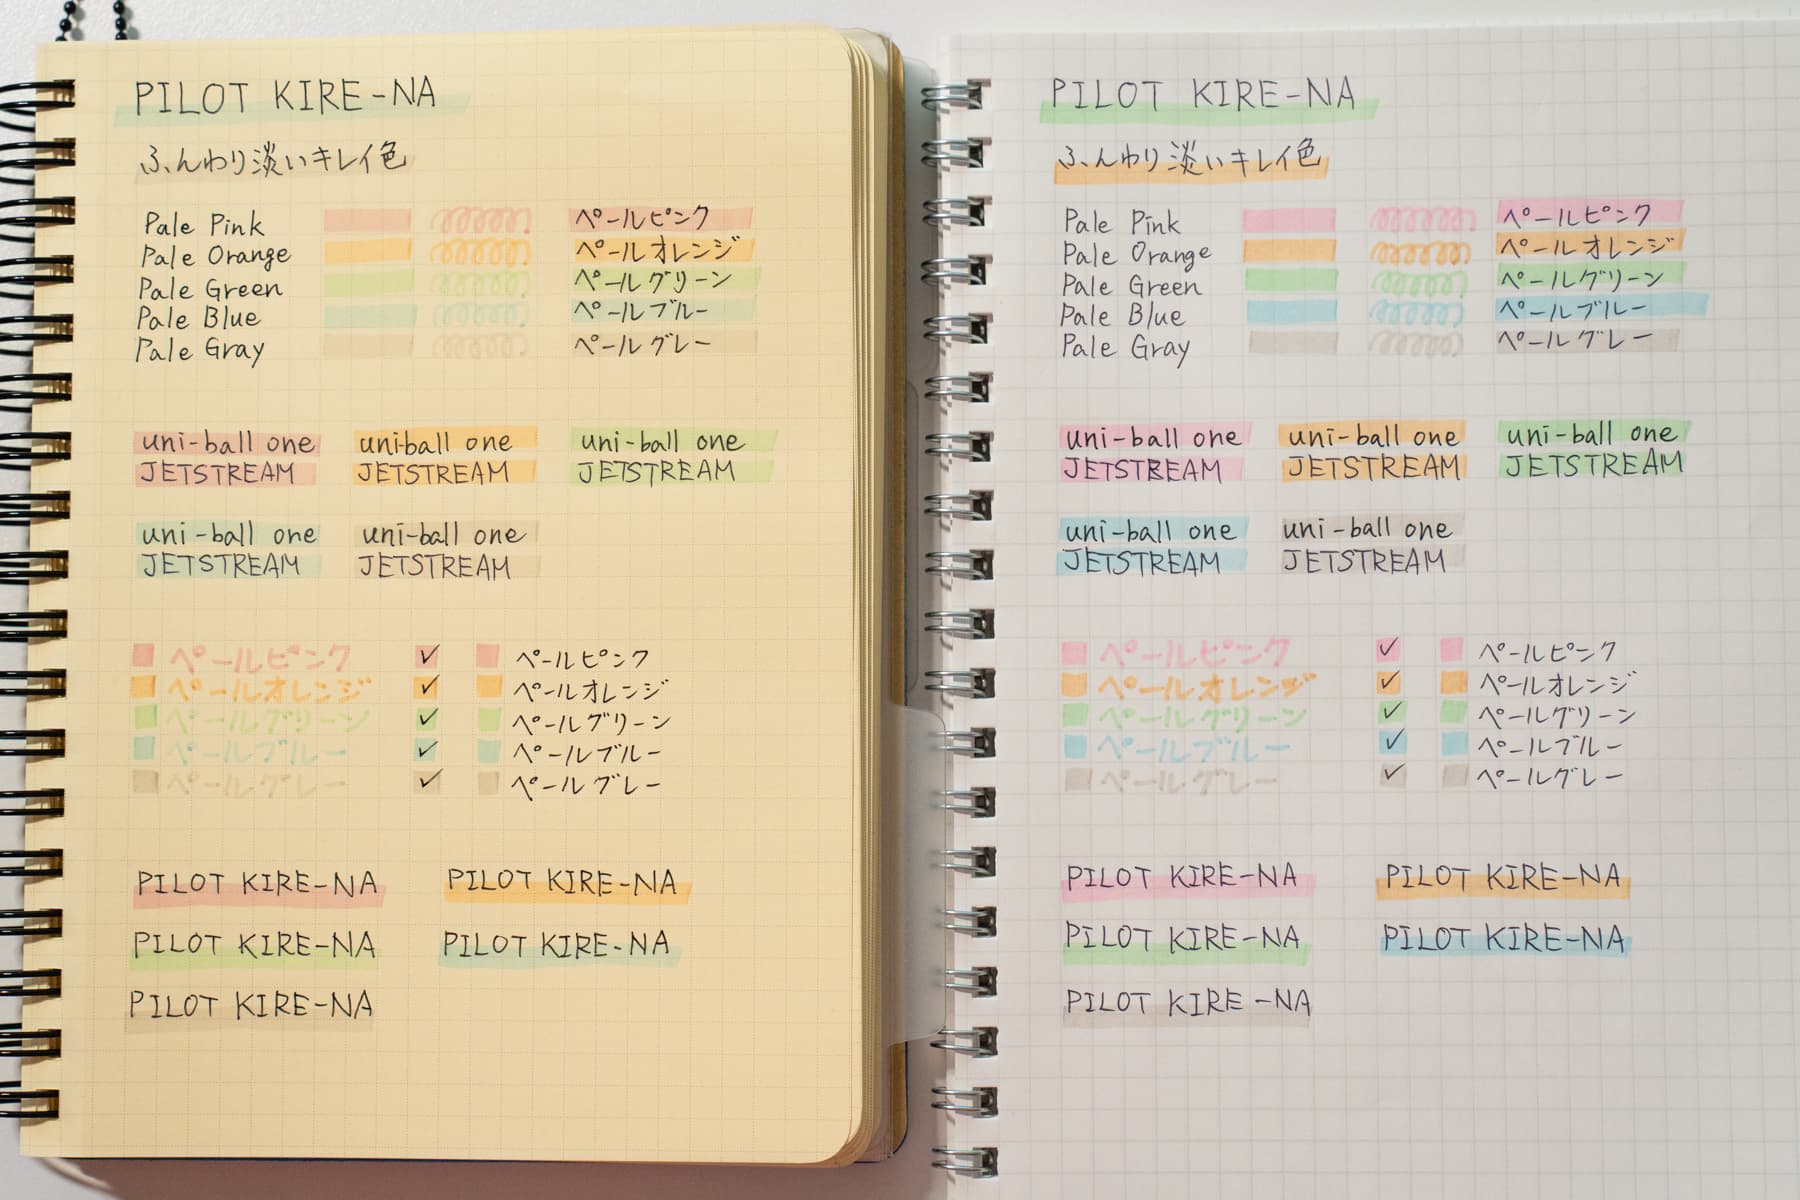 PILOT KIRE-NA
ふんわり淡いキレイ色
Pale Pink ペールピンク
Pale Orange ペールオレンジ
Pale Green ペールグリーン
Pale Blue ペールブルー
Pale Gray ペールグレー
uni-ball one uni-ball one uni-ball one
JETSTREAM JETSTREAM JETSTREAM
uni-ball one uni-ball one
JETSTREAM JETSTREAM
ペールピンク ✓ ペールピンク
ペールオレンジ ✓ ペールオレンジ
ペールグリーン ✓ ペールグリーン
ペールブルー ✓ ペールブルー
ペールグレー ✓ ペールグレー
PILOT KIRE-NA PILOT KIRE-NA
PILOT KIRE-NA PILOT KIRE-NA
PILOT KIRE-NA
PILOT KIRE-NA
ふんわり淡いキレイ色
Pale Pink ペールピンク
Pale Orange ペールオレンジ
Pale Green ペールグリーン
Pale Blue ペールブルー
Pale Gray ペールグレー
uni-ball one uni-ball one uni-ball one
JETSTREAM JETSTREAM JETSTREAM
uni-ball one uni-ball one
JETSTREAM JETSTREAM
ペールピンク ✓ ペールピンク
ペールオレンジ ✓ ペールオレンジ
ペールグリーン ✓ ペールグリーン
ペールブルー ✓ ペールブルー
ペールグレー ✓ ペールグレー
PILOT KIRE-NA PILOT KIRE-NA
PILOT KIRE-NA PILOT KIRE-NA
PILOT KIRE-NA